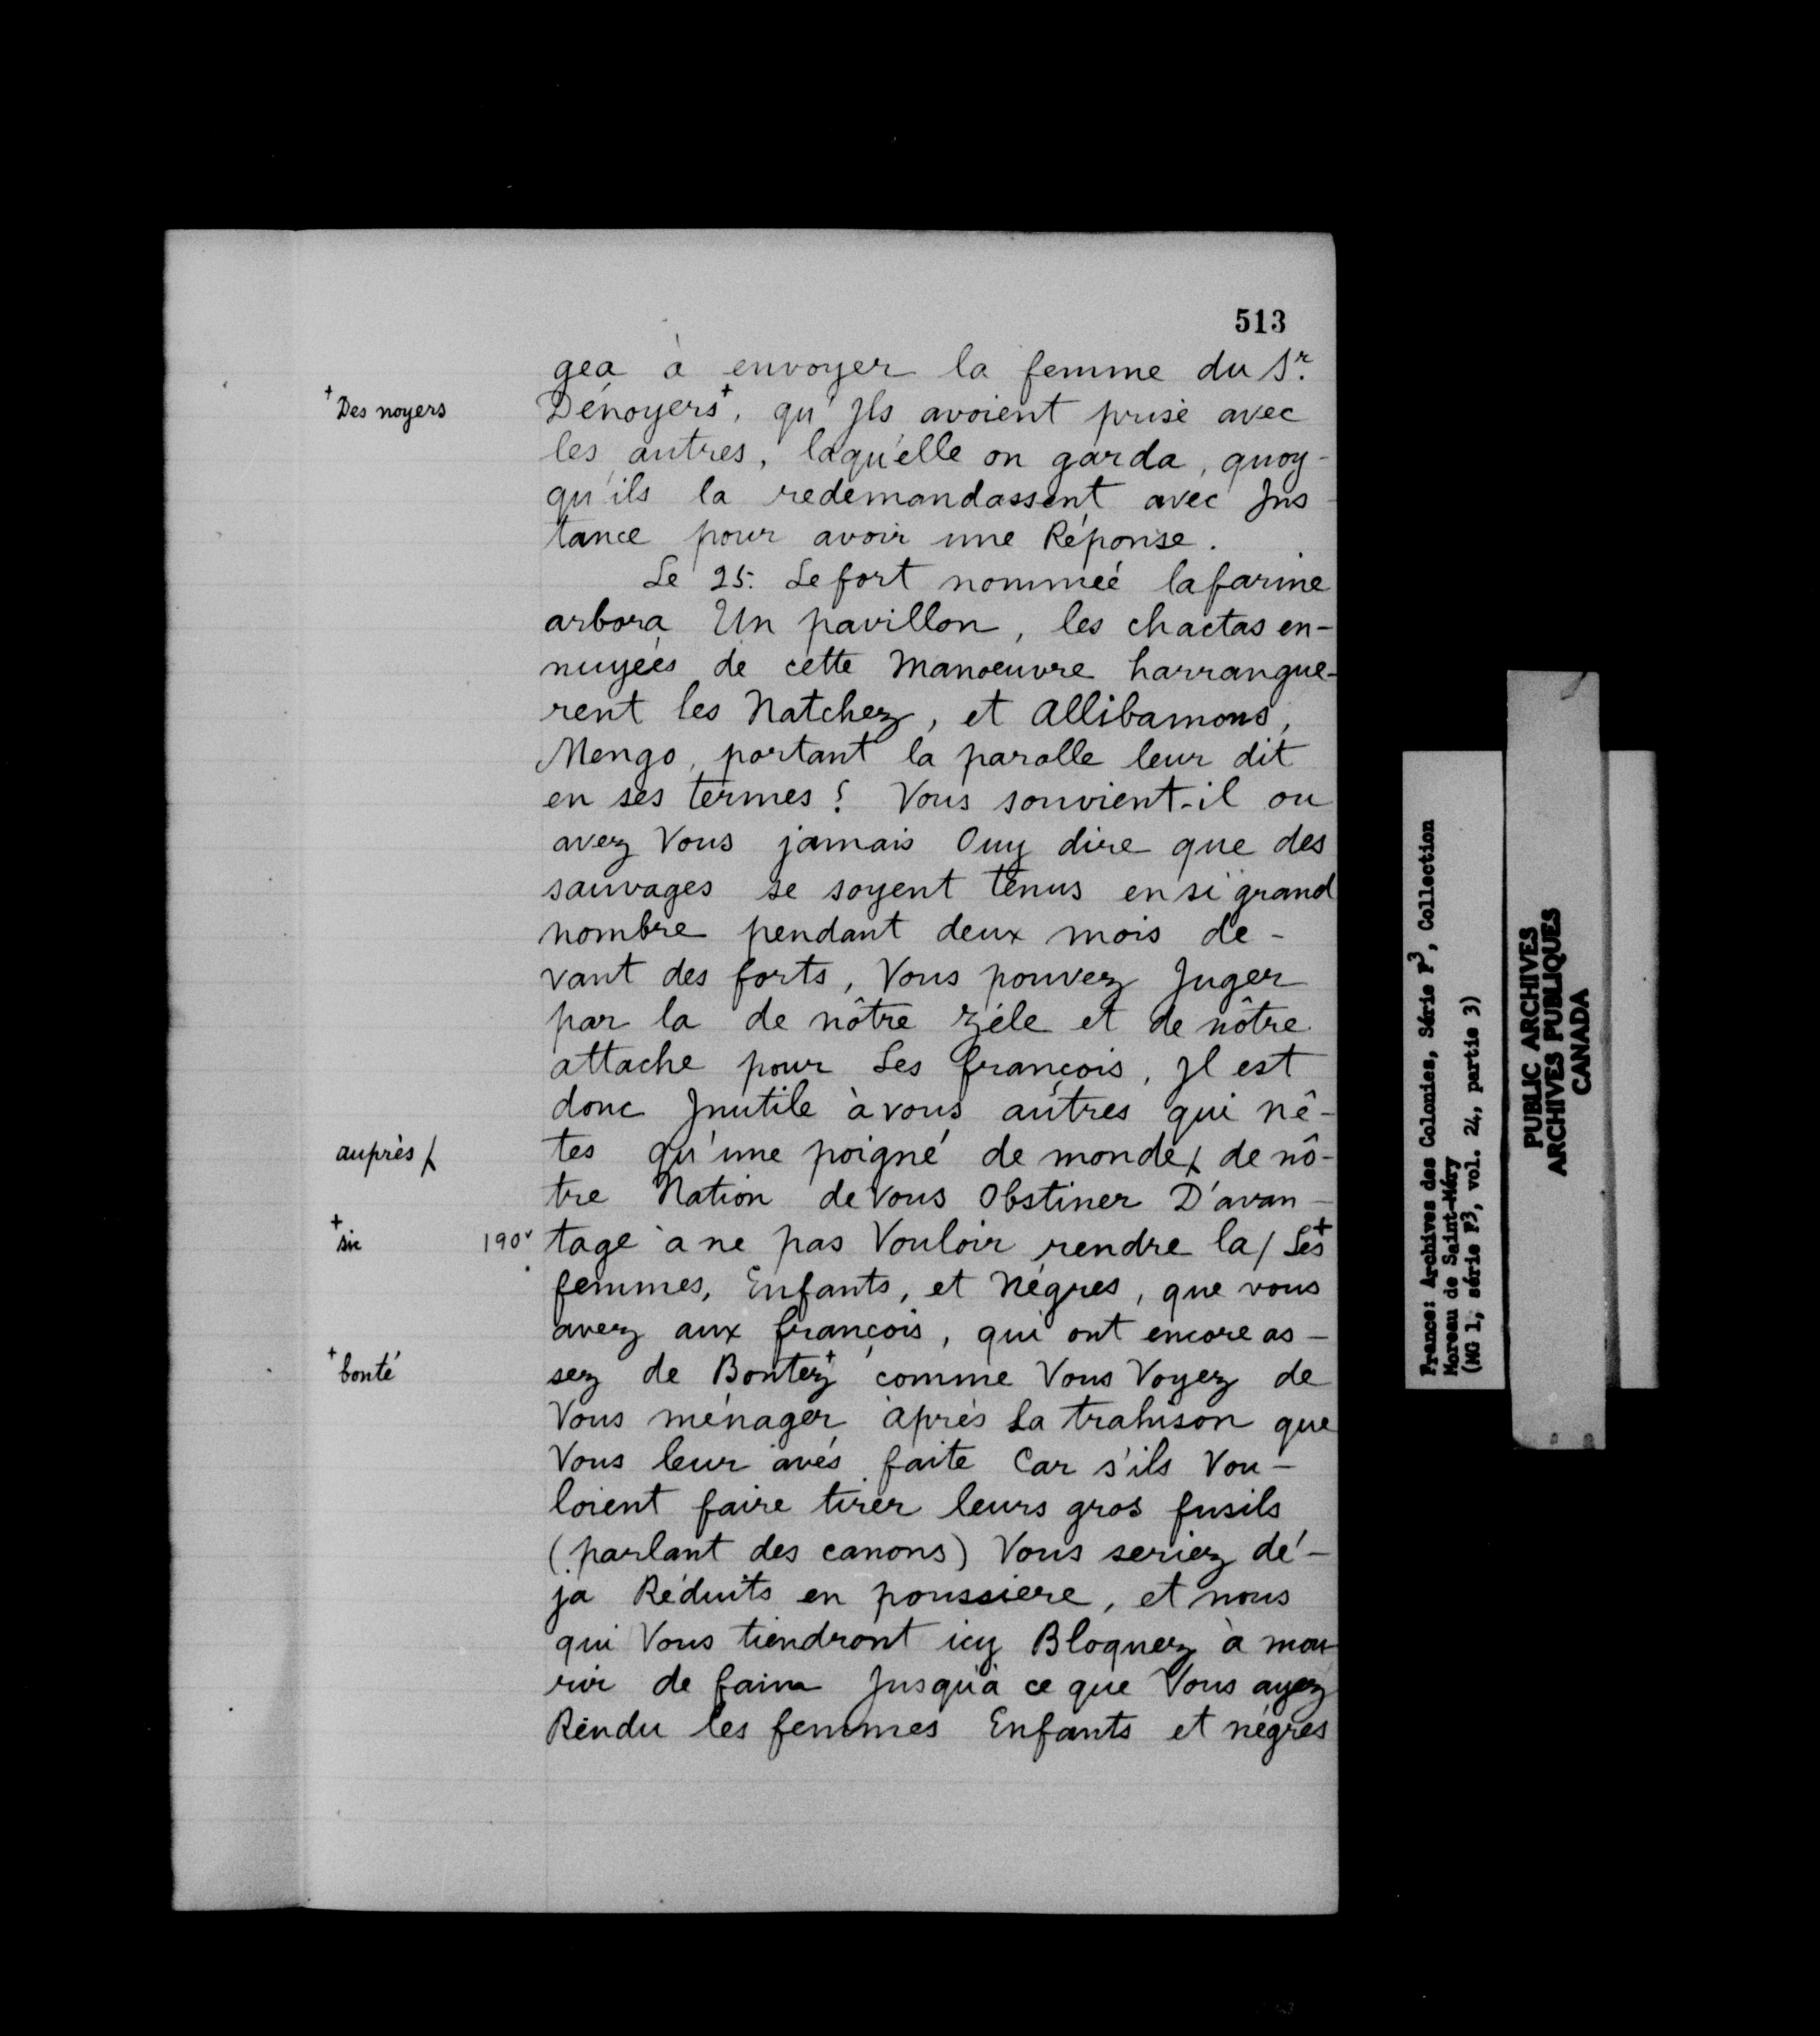 513
gea à envoyer la femme du Sr.
+ Des noyers
Dénoyers+, qu'Jls avoient prise avec
les autres, laqu'elle on garda, quoy-
qu'ils la redemandassent avec Jns-
tance pour avoir une Réponse.
Le 25. Le fort nommeé lafarine
arbora Un pavillon, les chactas en-
nuyeés de cette Manoeuvre harrangue-
rent les Natchez, et Allibamons,
Mengo, portant la parolle leur dit
en ses termes? Vous souvient-il ou
avez Vous jamais Ouy dire que des
sauvages se soyent tenus en si grand
nombre pendant deux mois de-
vant des forts, Vous pouvez Juger
par la de nôtre zéle et de nôtre
attache pour Les françois, Jl est
donc Jnutile à vous autres qui nê-
auprès /
tes qu'une poigné de monde / de nô-
tre Nation de Vous Obstiner D'avan-
+ sic
190v
tage à ne pas Vouloir rendre la / Les+
femmes, Enfants, et Négres, que vous
avez aux françois, qui ont encore as-
+ bonté
sez de Bontez+ comme Vous Voyez de
Vous ménager aprés La trahison que
Vous leur avés faite Car s'ils Vou-
loient faire tirer leurs gros fusils
(parlant des canons) Vous seriez dé-
ja Réduits en poussiere, et nous
qui Vous tiendront icy Bloquez à mou-
rir de faim Jusqu'à ce que Vous ayez
Rendu les femmes Enfants et négres
France: Archives des Colonies, Série F3, Collection
Moreau de Saint-Méry
(MG 1, série F3, vol. 24, partie 3)
PUBLIC ARCHIVES
ARCHIVES PUBLIQUES
CANADA